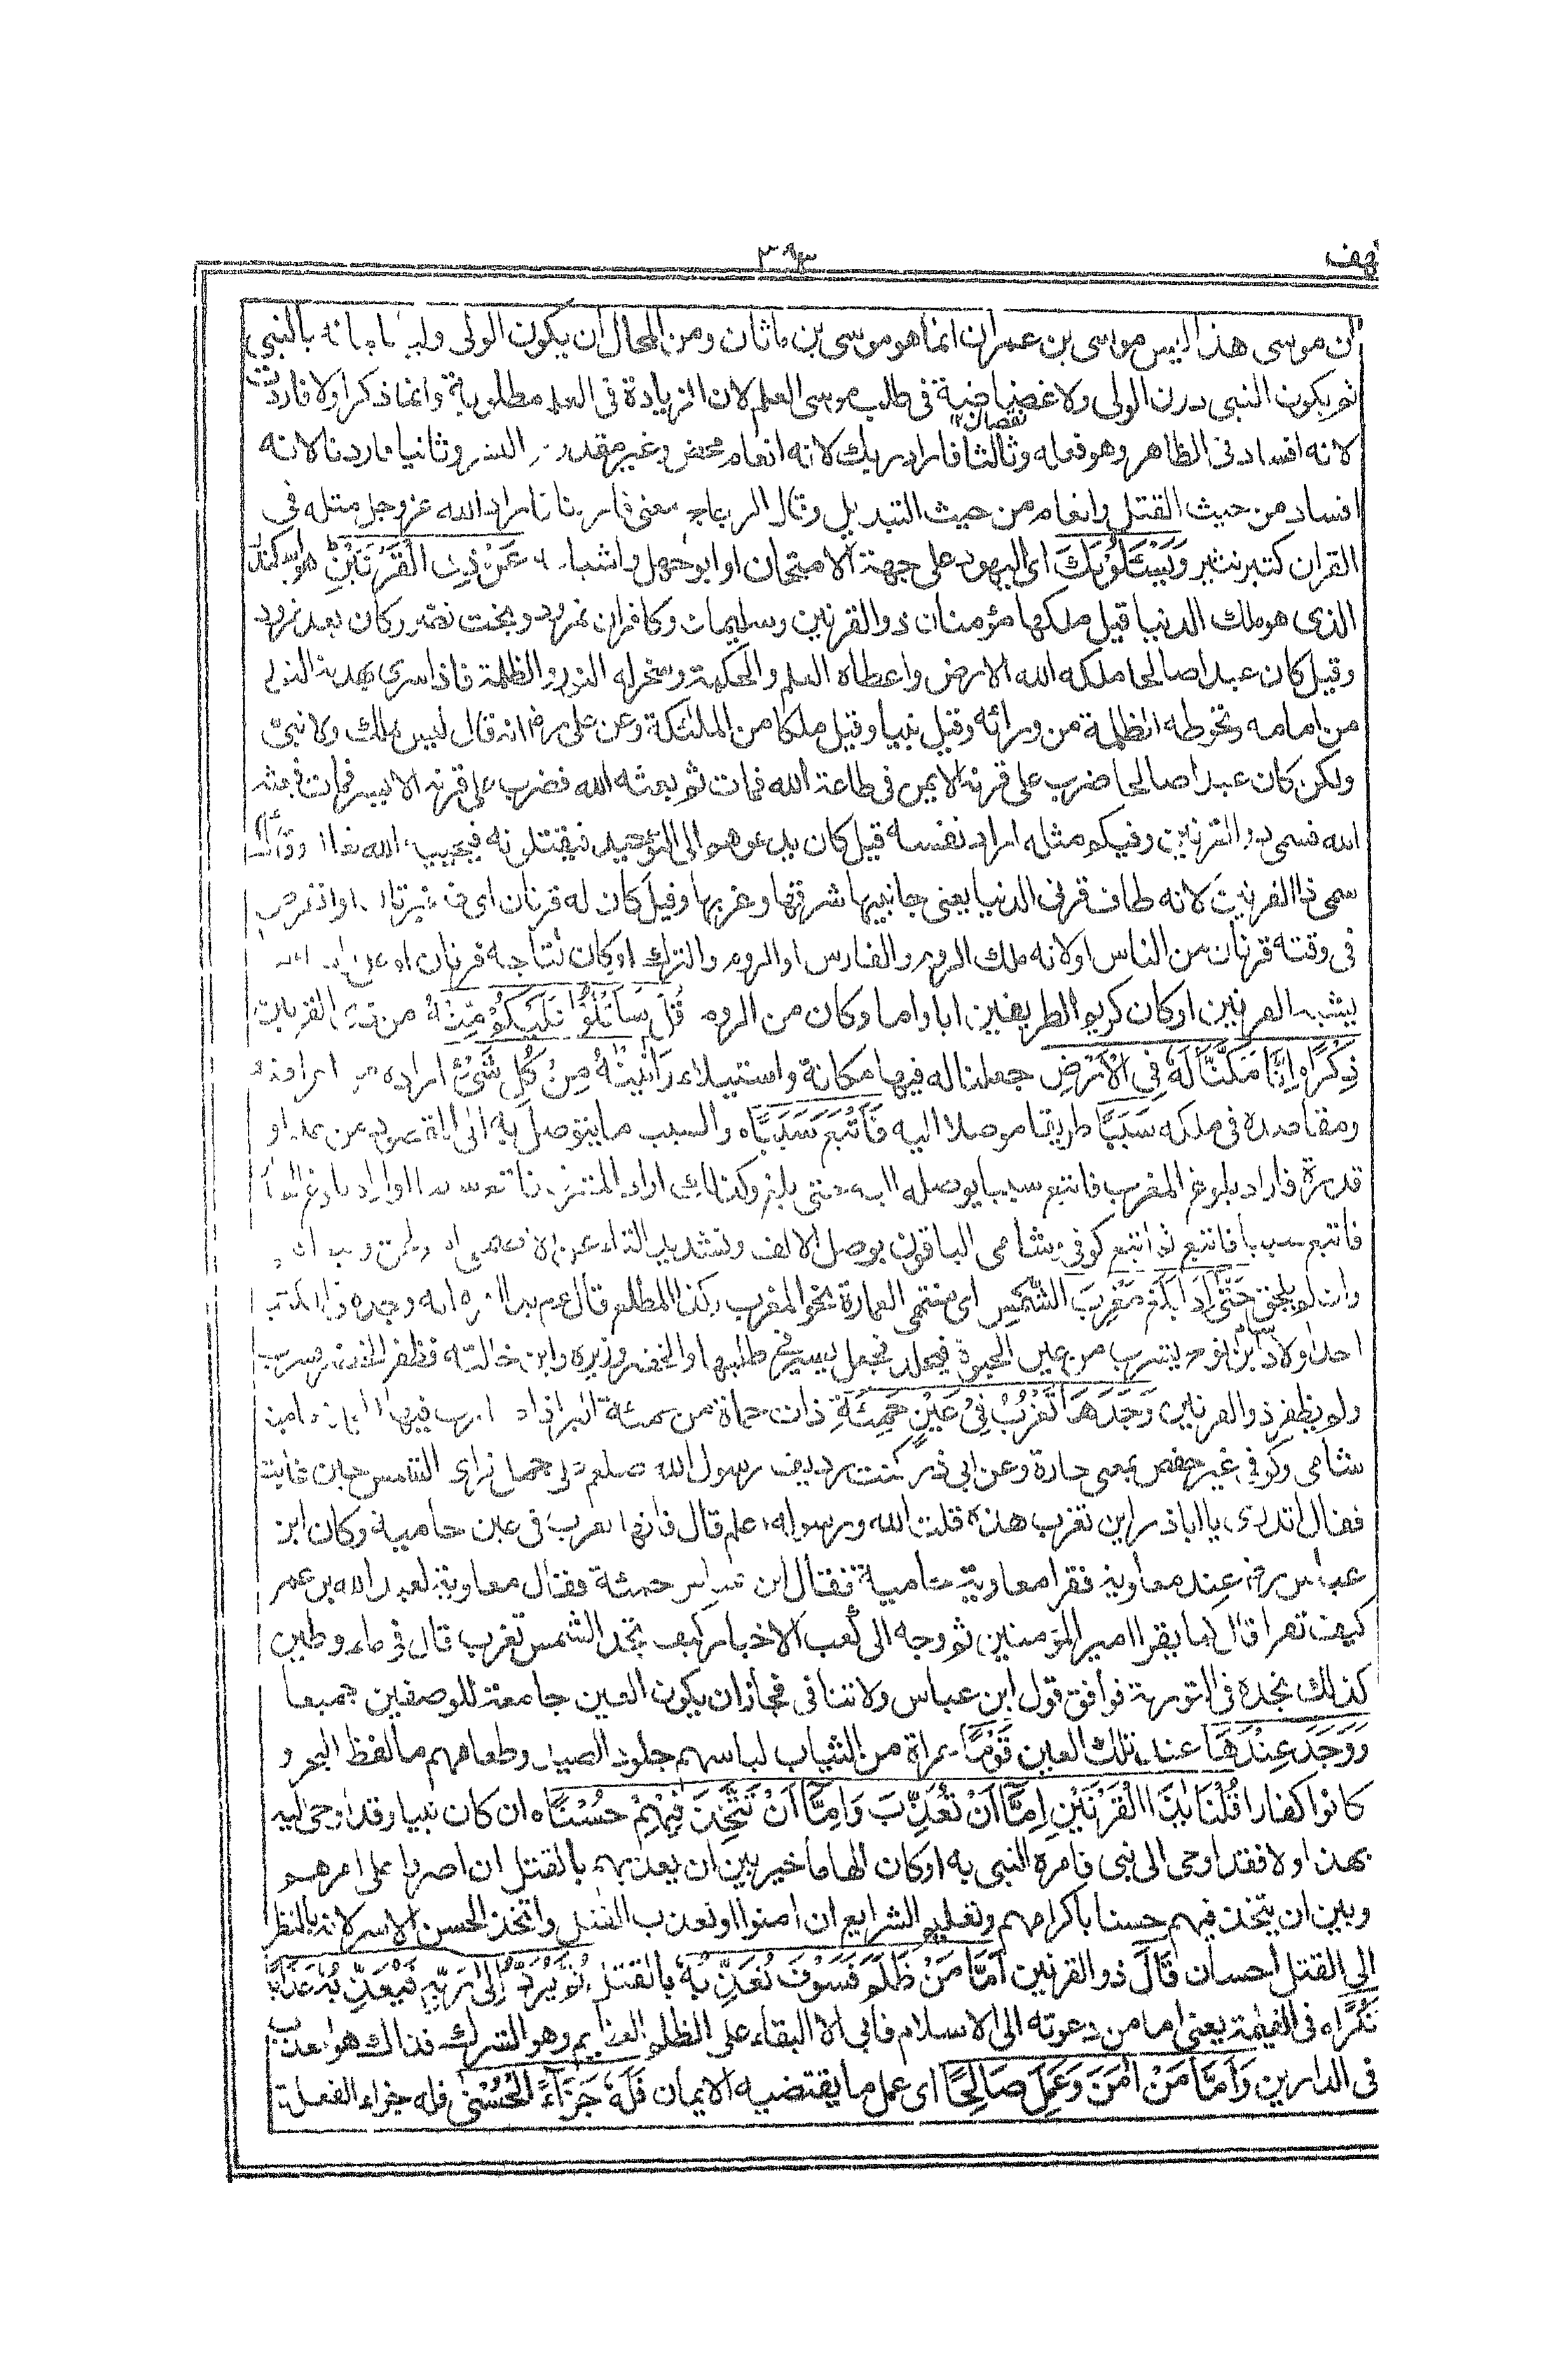 ٣٩٣
كهف
ان موسى هذا ليس موسى بن عمران انما هو موسى بن ماثان ومن المحال ان يكون الولى وليا بايمانه بالنبي
ثم يكون النبى دون الولى ولا غضاضة فى طلب موسى العلم لان الزيادة فى العلم مطلوبة وانما ذكر اولا فاردت
نقصان ١٢
لانه افساد فى الظاهر وهو فعله وثالثا فاراد ربك لانه انعام محض وغير مقدور البشر وثانيا فاردنا لانه
افساد من حيث القتل وانعام من حيث التبديل وقال الزجاج معنى فاردنا فاراد الله عز وجل ومثله فى
القران كثير وَيَسْـَٔلُوْنَكَ اى اليهود على جهة الامتحان او ابو جهل واشياعه عَنْ ذِى الْقَرْنَيْنِ هو الاسكندر
الذى هو ملك الدنيا قيل ملكها مؤمنان ذو القرنين وسليمان وكافران نمرود وبخت نصر وكان بعد نمرود
وقيل كان عبدا صالحا ملكه الله الارض واعطاه العلم والحكمة وسخر له النور والظلمة فاذا سرى يهديه النور
من امامه وتحوطه الظلمة من ورائه وقيل نبيا وقيل ملكا من الملئكة وعن على رض انه قال ليس بملك ولا نبىّ
ولكن كان عبدا صالحا ضرب على قرنه الايمن فى طاعة الله فمات ثم بعثه الله فضرب على قرنه الايسر فمات فبعثه
الله فسمى ذو القرنين وفيكم مثله اراد نفسه قيل كان يدعوهم الى التوحيد فيقتلونه فيحييه الله تعالى وقال
سمى ذا القرنين لانه طاف قرنى الدنيا يعنى جانبيها شرقها وغربها وقيل كان له قرنان اى ضفيرتان او انقرض
فى وقته قرنان من الناس او لانه ملك الروم والفارس او الروم والترك او كان لتاجه قرنان او على راسه ما
يشبه القرنين او كان كريم الطرفين ابا واما وكان من الروم قُلْ سَاَتْلُوْا عَلَيْكُمْ مِّنْهُ من ذى القرنين
ذِكْرًا اِنَّا مَكَّنَّا لَهٗ فِى الْاَرْضِ جعلنا له فيها مكانة واستيلاء وَاٰتَيْنٰهُ مِنْ كُلِّ شَىْءٍ اراده من اغراضه
ومقاصده فى ملكه سَبَبًا طريقا موصلا اليه فَاَتْبَعَ سَبَبًا ه والسبب ما يتوصل به الى المقصود من علم او
قدرة فاراد بلوغ المغرب فاتبع سببا يوصله اليه حتى بلغ وكذلك اراد المشرق فاتبع سببا واراد بلوغ السدين
فاتبع سببا فاتبع ثم اتبع كوفى وشامى الباقون بوصل الالف وتشديد التاء عن الاصمعى اتبع لحق واتبع اقتفى
وان لم يلحق حَتّٰٓى اِذَا بَلَغَ مَغْرِبَ الشَّمْسِ اى منتهى العمارة نحو المغرب وكذا المطلع قال عم بدء امره انه وجد فى الكتب
ان احد اولاد سام بن نوح يشرب من عين الحيوة فيخلد فجعل يسير فى طلبها والخضر وزيره وابن خالته فظفر الخضر فشرب
ولم يظفر ذو القرنين وَجَدَهَا تَغْرُبُ فِىْ عَيْنٍ حَمِئَةٍ ذات حماة من حمئت البئر اذا صارت فيها الحماة حامية
شامى وكوفى غير حفص بمعنى حارة وعن ابى ذر كنت رديف رسول الله صلعم على جمل فراى الشمس حين غابت
فقال اتدرى يا ابا ذر اين تغرب هذه قلت الله ورسوله اعلم قال فانها تغرب فى عين حامية وكان ابن
عباس رض عند معاوية فقرا معاوية حامية فقال ابن عباس حمئة فقال معاوية لعبد الله بن عمر
كيف تقرا قال كما يقرا امير المؤمنين ثم وجه الى كعب الاخبار كيف تجد الشمس تغرب قال فى ماء وطين
كذلك نجده فى التورىة فوافق قول ابن عباس ولا تنافى فجاز ان يكون العين جامعة للوصفين جميعا
وَوَجَدَ عِنْدَهَا عند تلك العين قَوْمًا عراة من الثياب لباسهم جلود الصيد وطعامهم ما لفظ البحر و
كانوا كفارا قُلْنَا يٰذَا الْقَرْنَيْنِ اِمَّآ اَنْ تُعَذِّبَ وَاِمَّآ اَنْ تَتَّخِذَ فِيْهِمْ حُسْنًا ه ان كان نبيا وقد اوحى اليه
بهذا والا فقد اوحى الى نبى فامره النبى به او كان الهاما خير بين ان يعذبهم بالقتل ان اصروا على امرهم
وبين ان يتخذ فيهم حسنا باكرامهم وتعليم الشرايع ان امنوا او تعذب القتل واتخذ الحسن الاسر لانه بالنظر
الى القتل احسان قَالَ ذو القرنين اَمَّا مَنْ ظَلَمَ فَسَوْفَ نُعَذِّبُهٗ بالقتل ثُمَّ يُرَدُّ اِلٰى رَبِّهٖ فَيُعَذِّبُهٗ عَذَابًا
نُّكْرًا ه فى القيمة يعنى اما من دعوته الى الاسلام فابى الا البقاء على الظلم العظيم وهو الشرك فذاك هو المعذب
فى الدارين وَاَمَّا مَنْ اٰمَنَ وَعَمِلَ صَالِحًا اى عمل ما يقتضيه الايمان فَلَهٗ جَزَآءَ ۨالْحُسْنٰى فله جزاء الفعلة